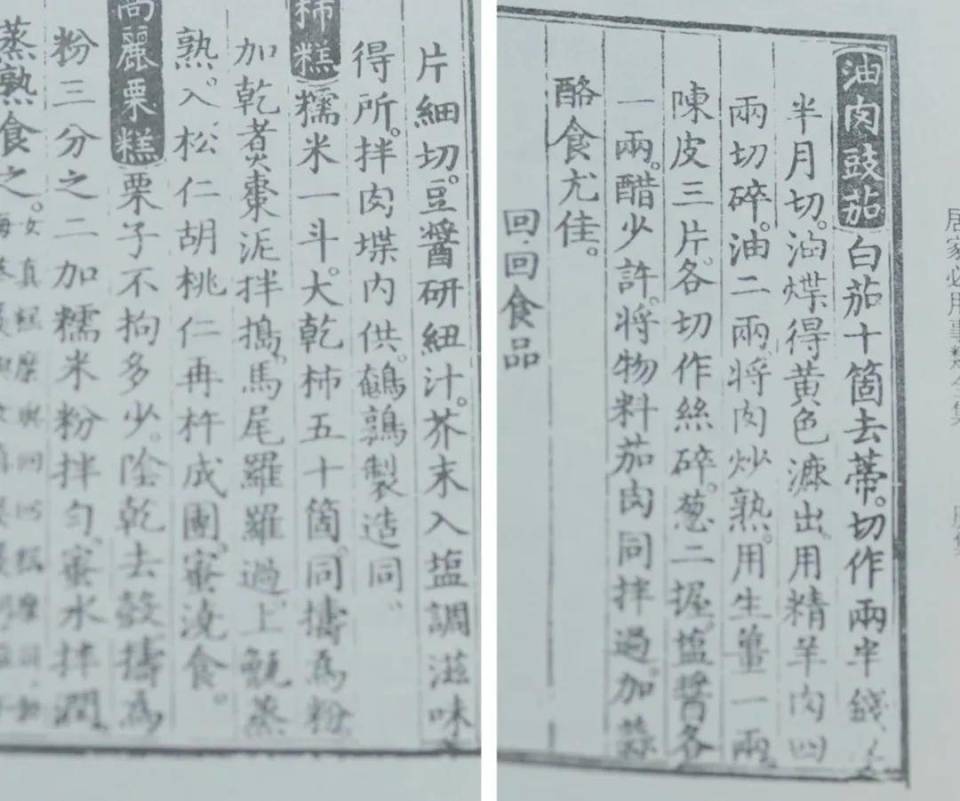 居家必用事類全集
油肉豉茄 白茄十箇去蒂。切作兩半
半月切。油煠得黃色漉出。用精羊肉四
兩切碎。油二兩。將肉炒熟。用生薑一兩
陳皮三片。各切作絲碎。葱二握。塩醬各
一兩。醋少許。將物料茄肉同拌過。加蒜
酪食尤佳。
回回食品
片細切。豆醬研紐汁。芥末入塩調滋味
得所。拌肉堞内供。鵪鶉製造同。
柿糕 糯米一斗。大乾柿五十箇。同擣爲粉
加乾煮棗泥拌搗。馬尾羅羅過。上甑蒸
熟。入松仁胡桃仁再杵成團。蜜澆食。
高麗栗糕 栗子不拘多少。陰乾去殼擣爲
粉三分之二加糯米粉拌勻。蜜水拌潤
蒸熟食之。